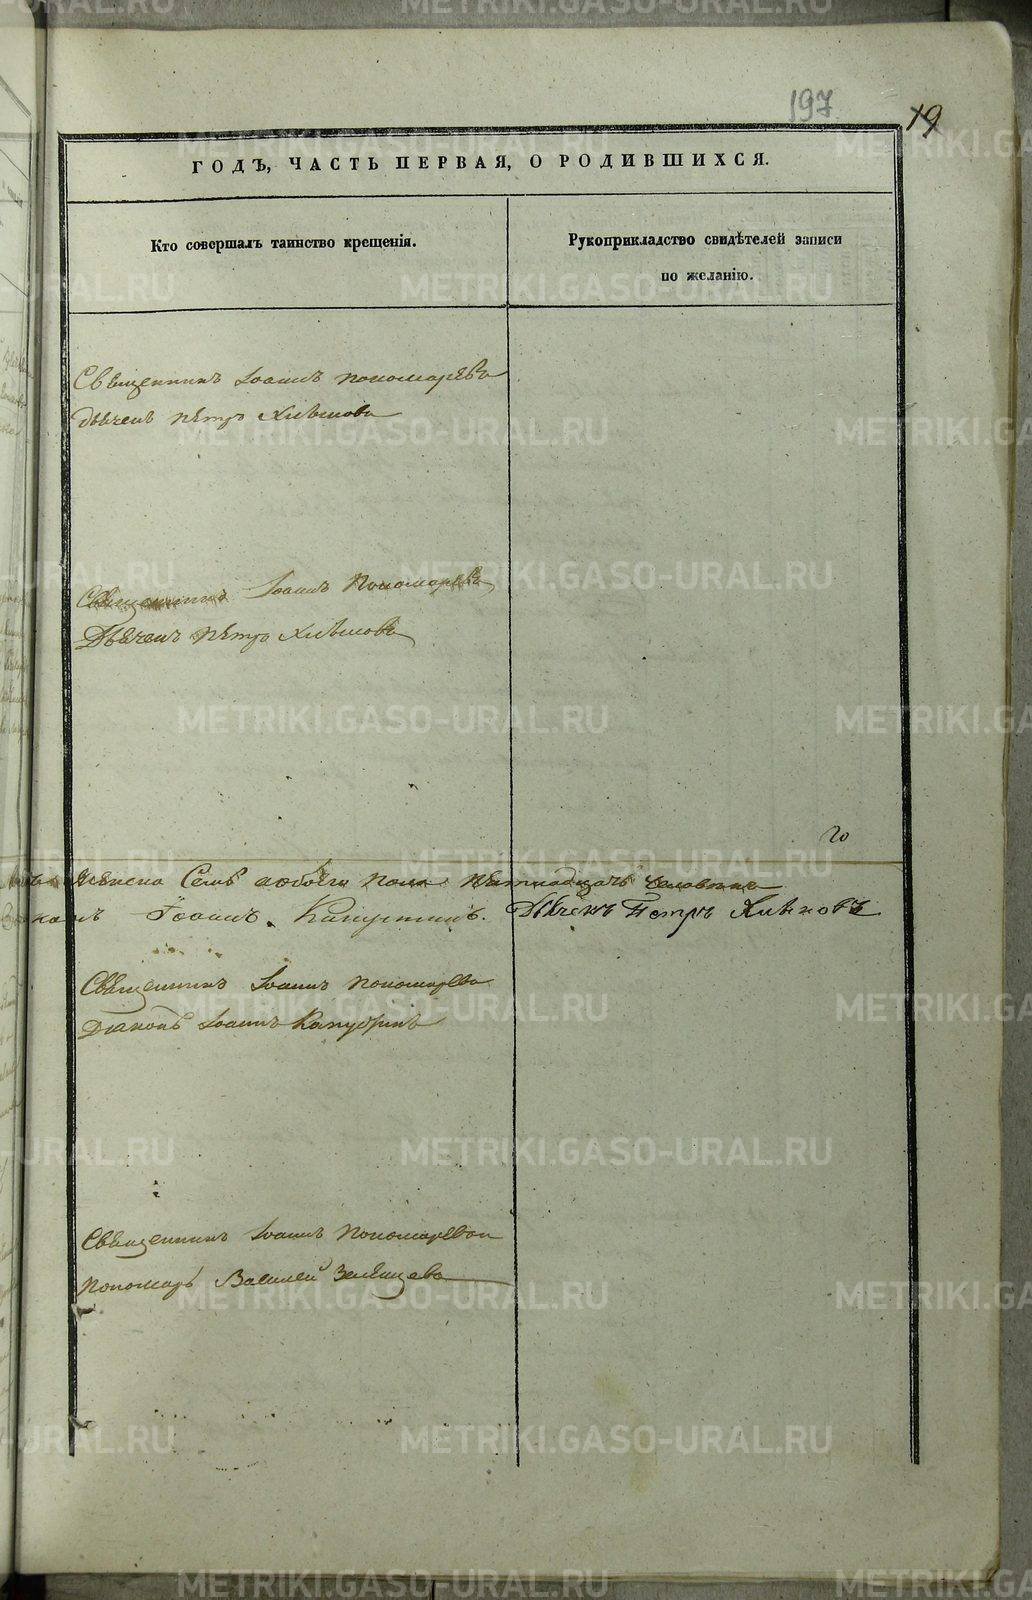 197
19
ГОДЪ, ЧАСТЬ ПЕРВАЯ, О РОДИВШИХСЯ.
Кто совершалъ таинство крещенія.
Рукоприкладство свидѣтелей записи
по желанію.
Священникъ Іоаннъ Пономаревъ
Дьячекъ Петръ Хлѣновъ
Священникъ Іоаннъ Пономаревъ
Дьячекъ Петръ Хлѣновъ
го
женска Семь а обоего пола пятнадцать человѣкъ
Іоаннъ Капустинъ. Дьячекъ Петръ Хлѣновъ
Священникъ Іоаннъ Пономаревъ
Діаконъ Іоаннъ Капустинъ
Священникъ Іоаннъ Пономаревъ
Пономарь Василей
METRIKI.GASO-URAL.RU